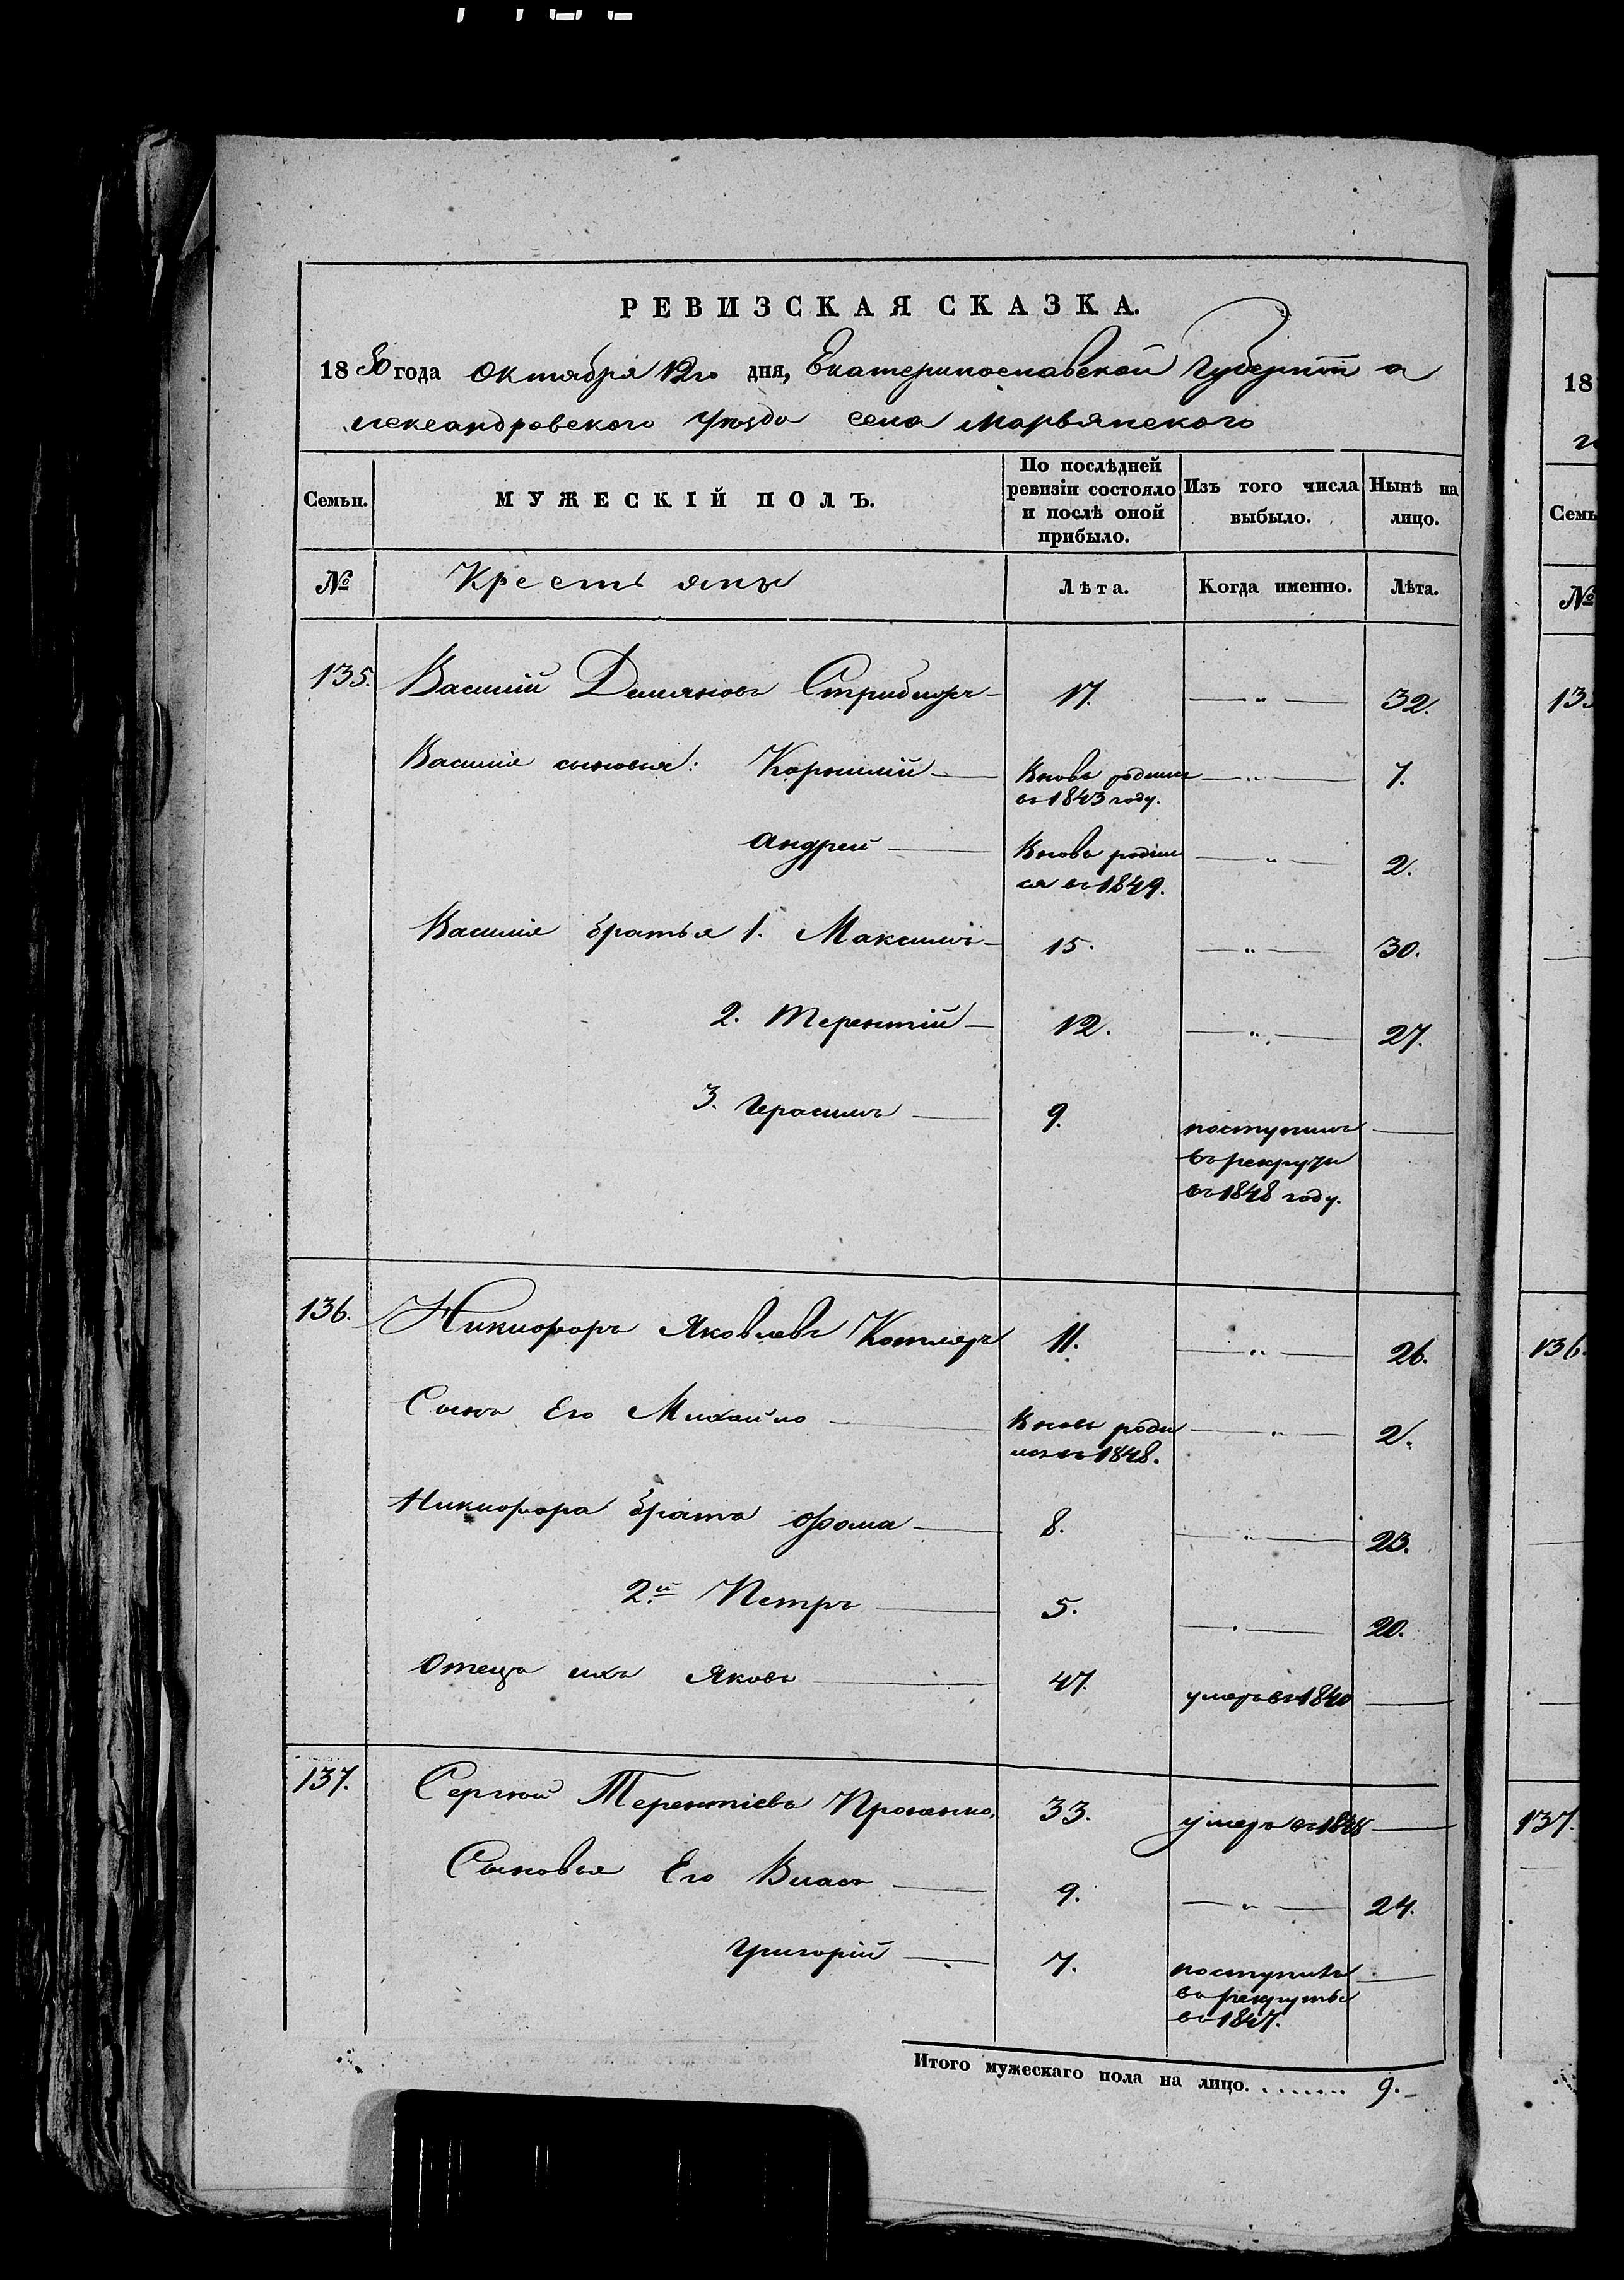 РЕВИЗСКАЯ СКАЗКА.
1850 года Октября 12го дня, Екатеринославской Губернiи А
лександровского Уѣзда села Марьянского
Семьи.
МУЖЕСКІЙ ПОЛЪ.
По послѣдней ревизіи состояло и послѣ оной прибыло.
Изъ того числа выбыло.
Нынѣ на лицо.
№ Крестьянъ Лѣта. Когда именно. Лѣта.
135. Василій Демяновъ 17. — „ — 32.
Василія сыновья: Корнилій — Вновь родился — „ — 7.
въ 1843 году.
Андрей — Вновь родил — „ — 2.
ся въ 1849.
Василія братья 1. Максимъ — 15. — „ — 30.
2. Терентій — 12. — „ — 27.
3. Герасимъ — 9. поступилъ —
въ рекруты
въ 1848 году.
136. Никифоръ Яковлевъ Котляръ 11. — „ — 26.
Сынъ Его Михайло — Вновь роди — „ — 2.
лся въ 1848.
Никифора братъ Фома — 8. — „ — 23.
2.й Петръ — 5. — „ — 20.
Отецъ ихъ Яковъ — 47. умеръ въ 1840 —
137. Сергѣй Терентіевъ 33. умеръ въ 1848 —
Сыновья Его Власъ — 9. — „ — 24.
Григорій — 7. поступилъ —
въ рекруты
въ 1847.
Итого мужескаго пола на лицо. ....... 9. –
18
Семь
№
135
136.
137.